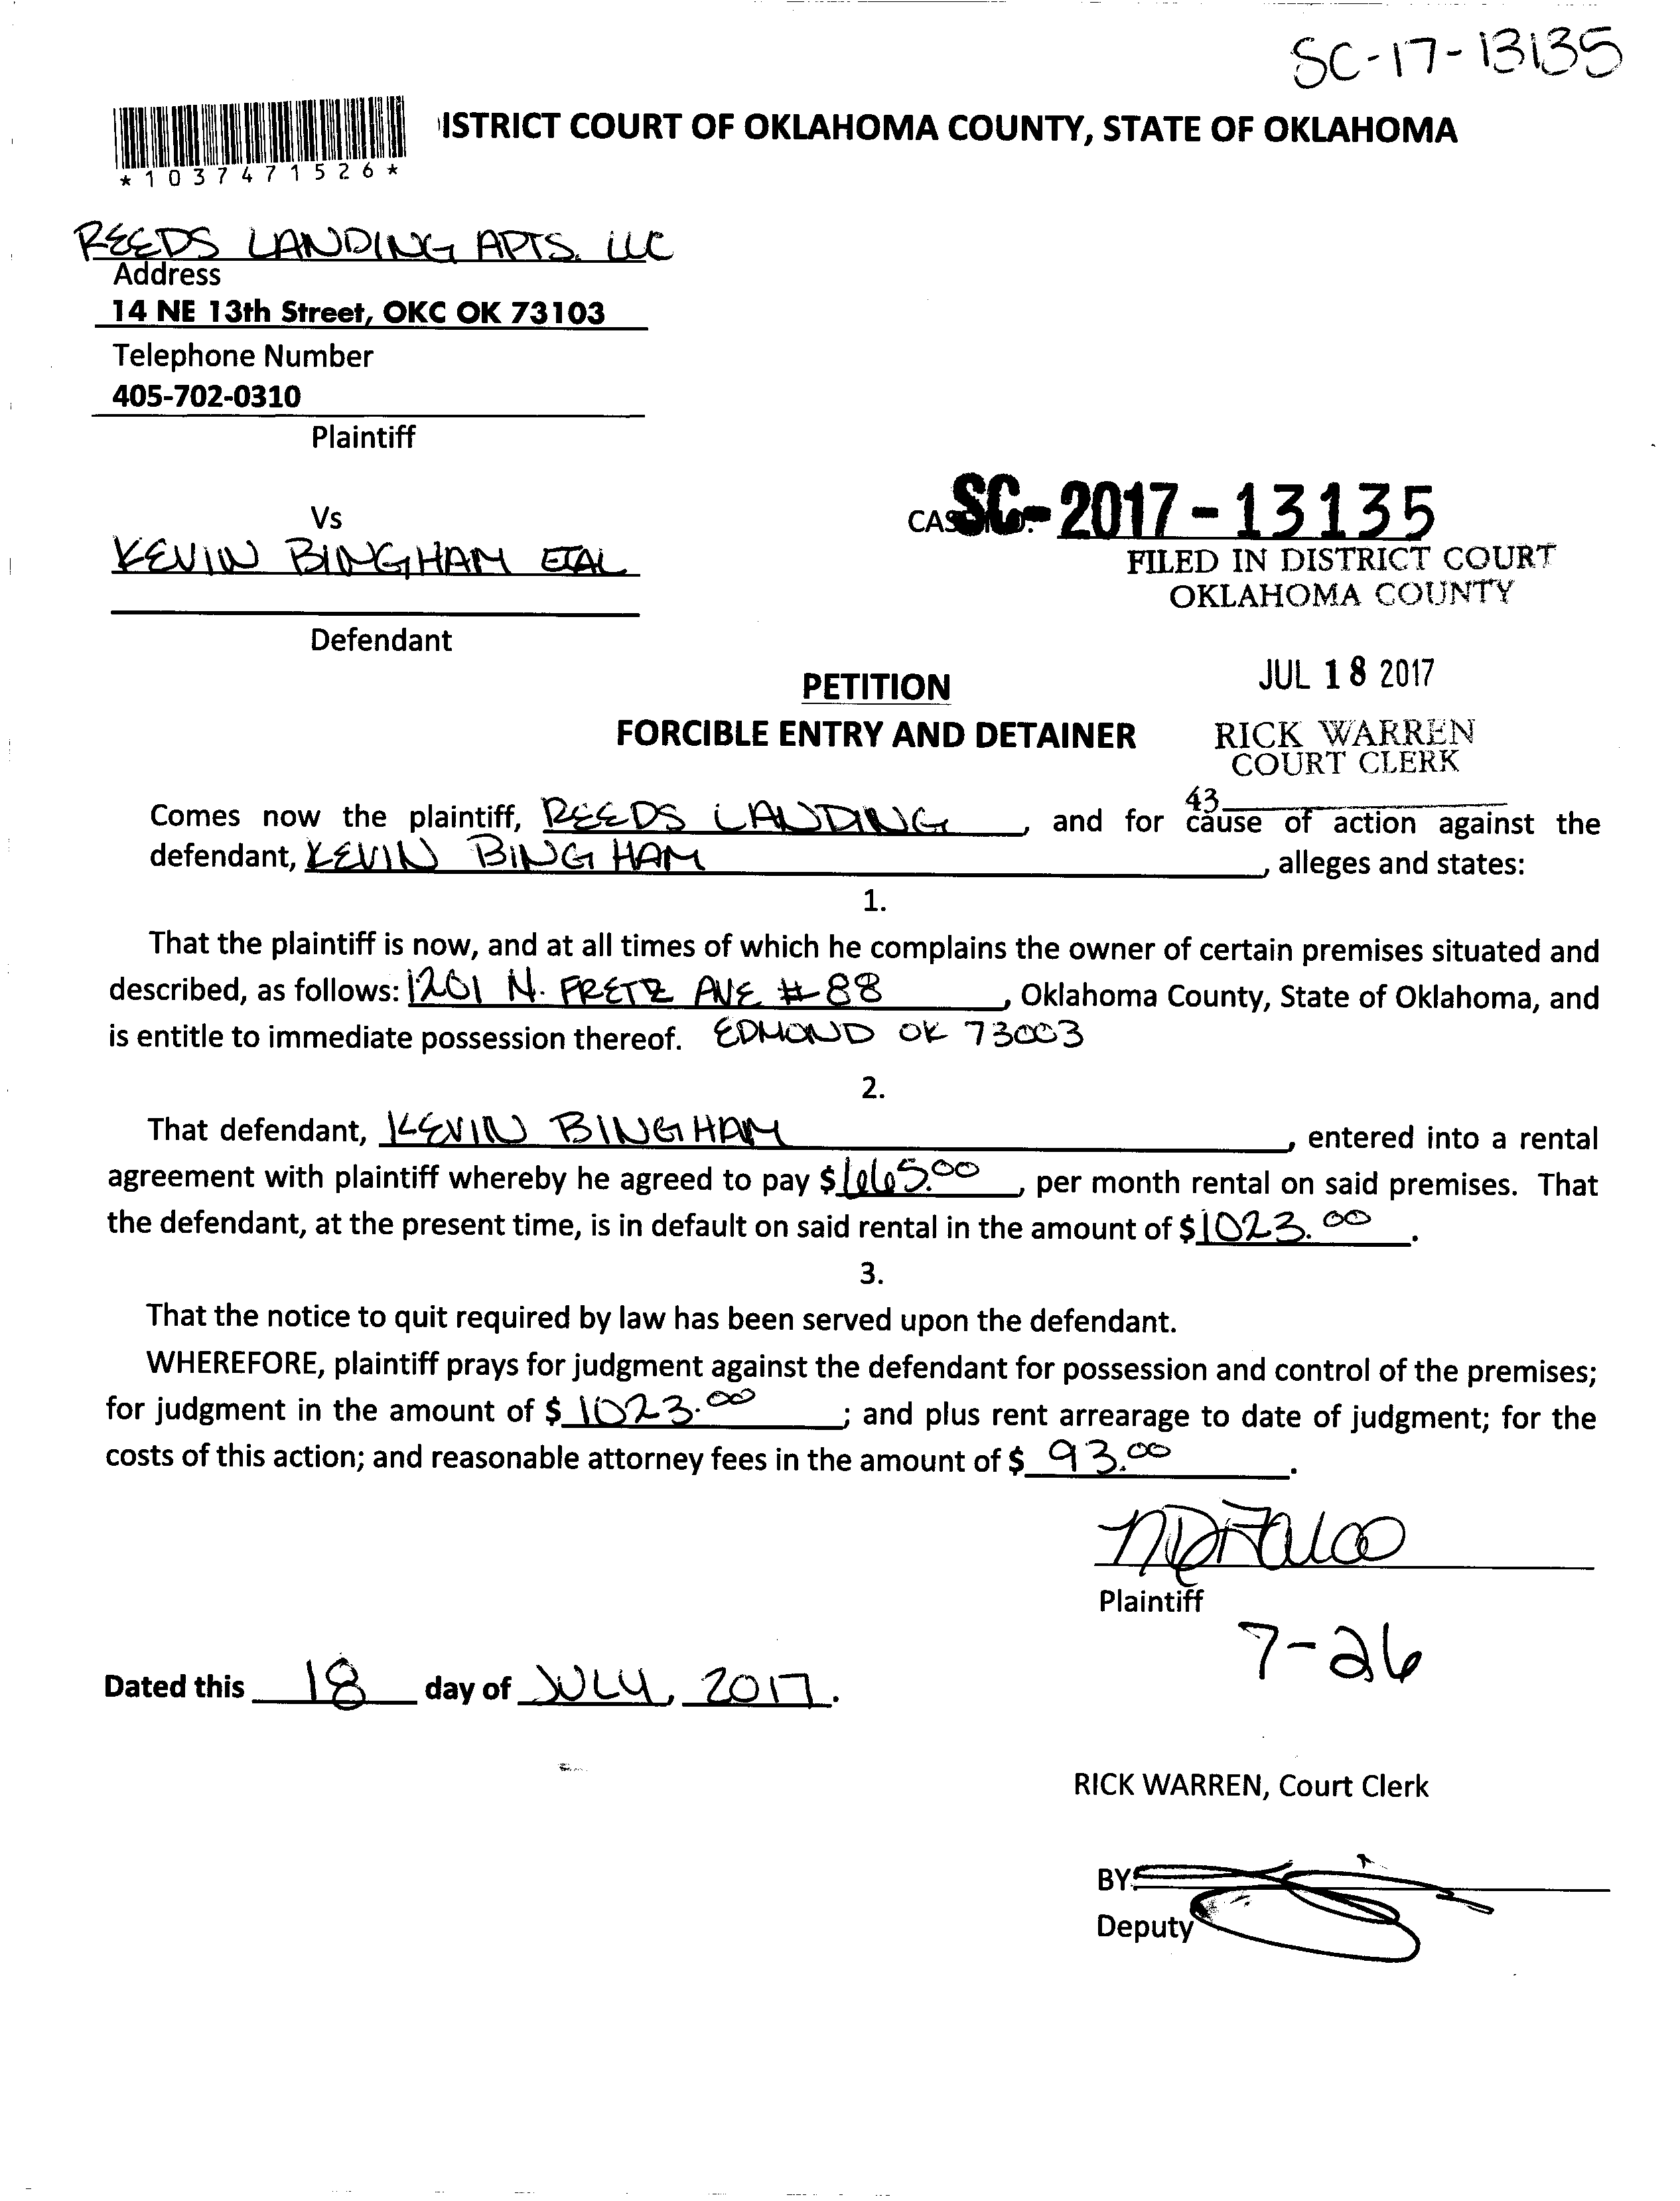 SC-17-13135
ISTRICT COURT OF OKLAHOMA COUNTY, STATE OF OKLAHOMA
*1037471526*
REEDS LANDING APTS. LLC
Address
14 NE 13th Street, OKC OK 73103
Telephone Number
405-702-0310
Plaintiff
Vs
CAS SC-2017-13135
KEVIN BINGHAM ETAL
FILED IN DISTRICT COURT
OKLAHOMA COUNTY
Defendant
JUL 18 2017
PETITION
FORCIBLE ENTRY AND DETAINER
RICK WARREN
COURT CLERK
43
Comes now the plaintiff, REEDS LANDING, and for cause of action against the
defendant, KEVIN BINGHAM, alleges and states:
1.
That the plaintiff is now, and at all times of which he complains the owner of certain premises situated and
described, as follows: 1201 N. FRETZ AVE #88, Oklahoma County, State of Oklahoma, and
is entitle to immediate possession thereof. EDMOND OK 73003
2.
That defendant, KEVIN BINGHAM, entered into a rental
agreement with plaintiff whereby he agreed to pay $665.00, per month rental on said premises. That
the defendant, at the present time, is in default on said rental in the amount of $1023.00.
3.
That the notice to quit required by law has been served upon the defendant.
WHEREFORE, plaintiff prays for judgment against the defendant for possession and control of the premises;
for judgment in the amount of $1023.00; and plus rent arrearage to date of judgment; for the
costs of this action; and reasonable attorney fees in the amount of $93.00.
Plaintiff
7-26
Dated this 18 day of JULY, 2017.
RICK WARREN, Court Clerk
BY:
Deputy